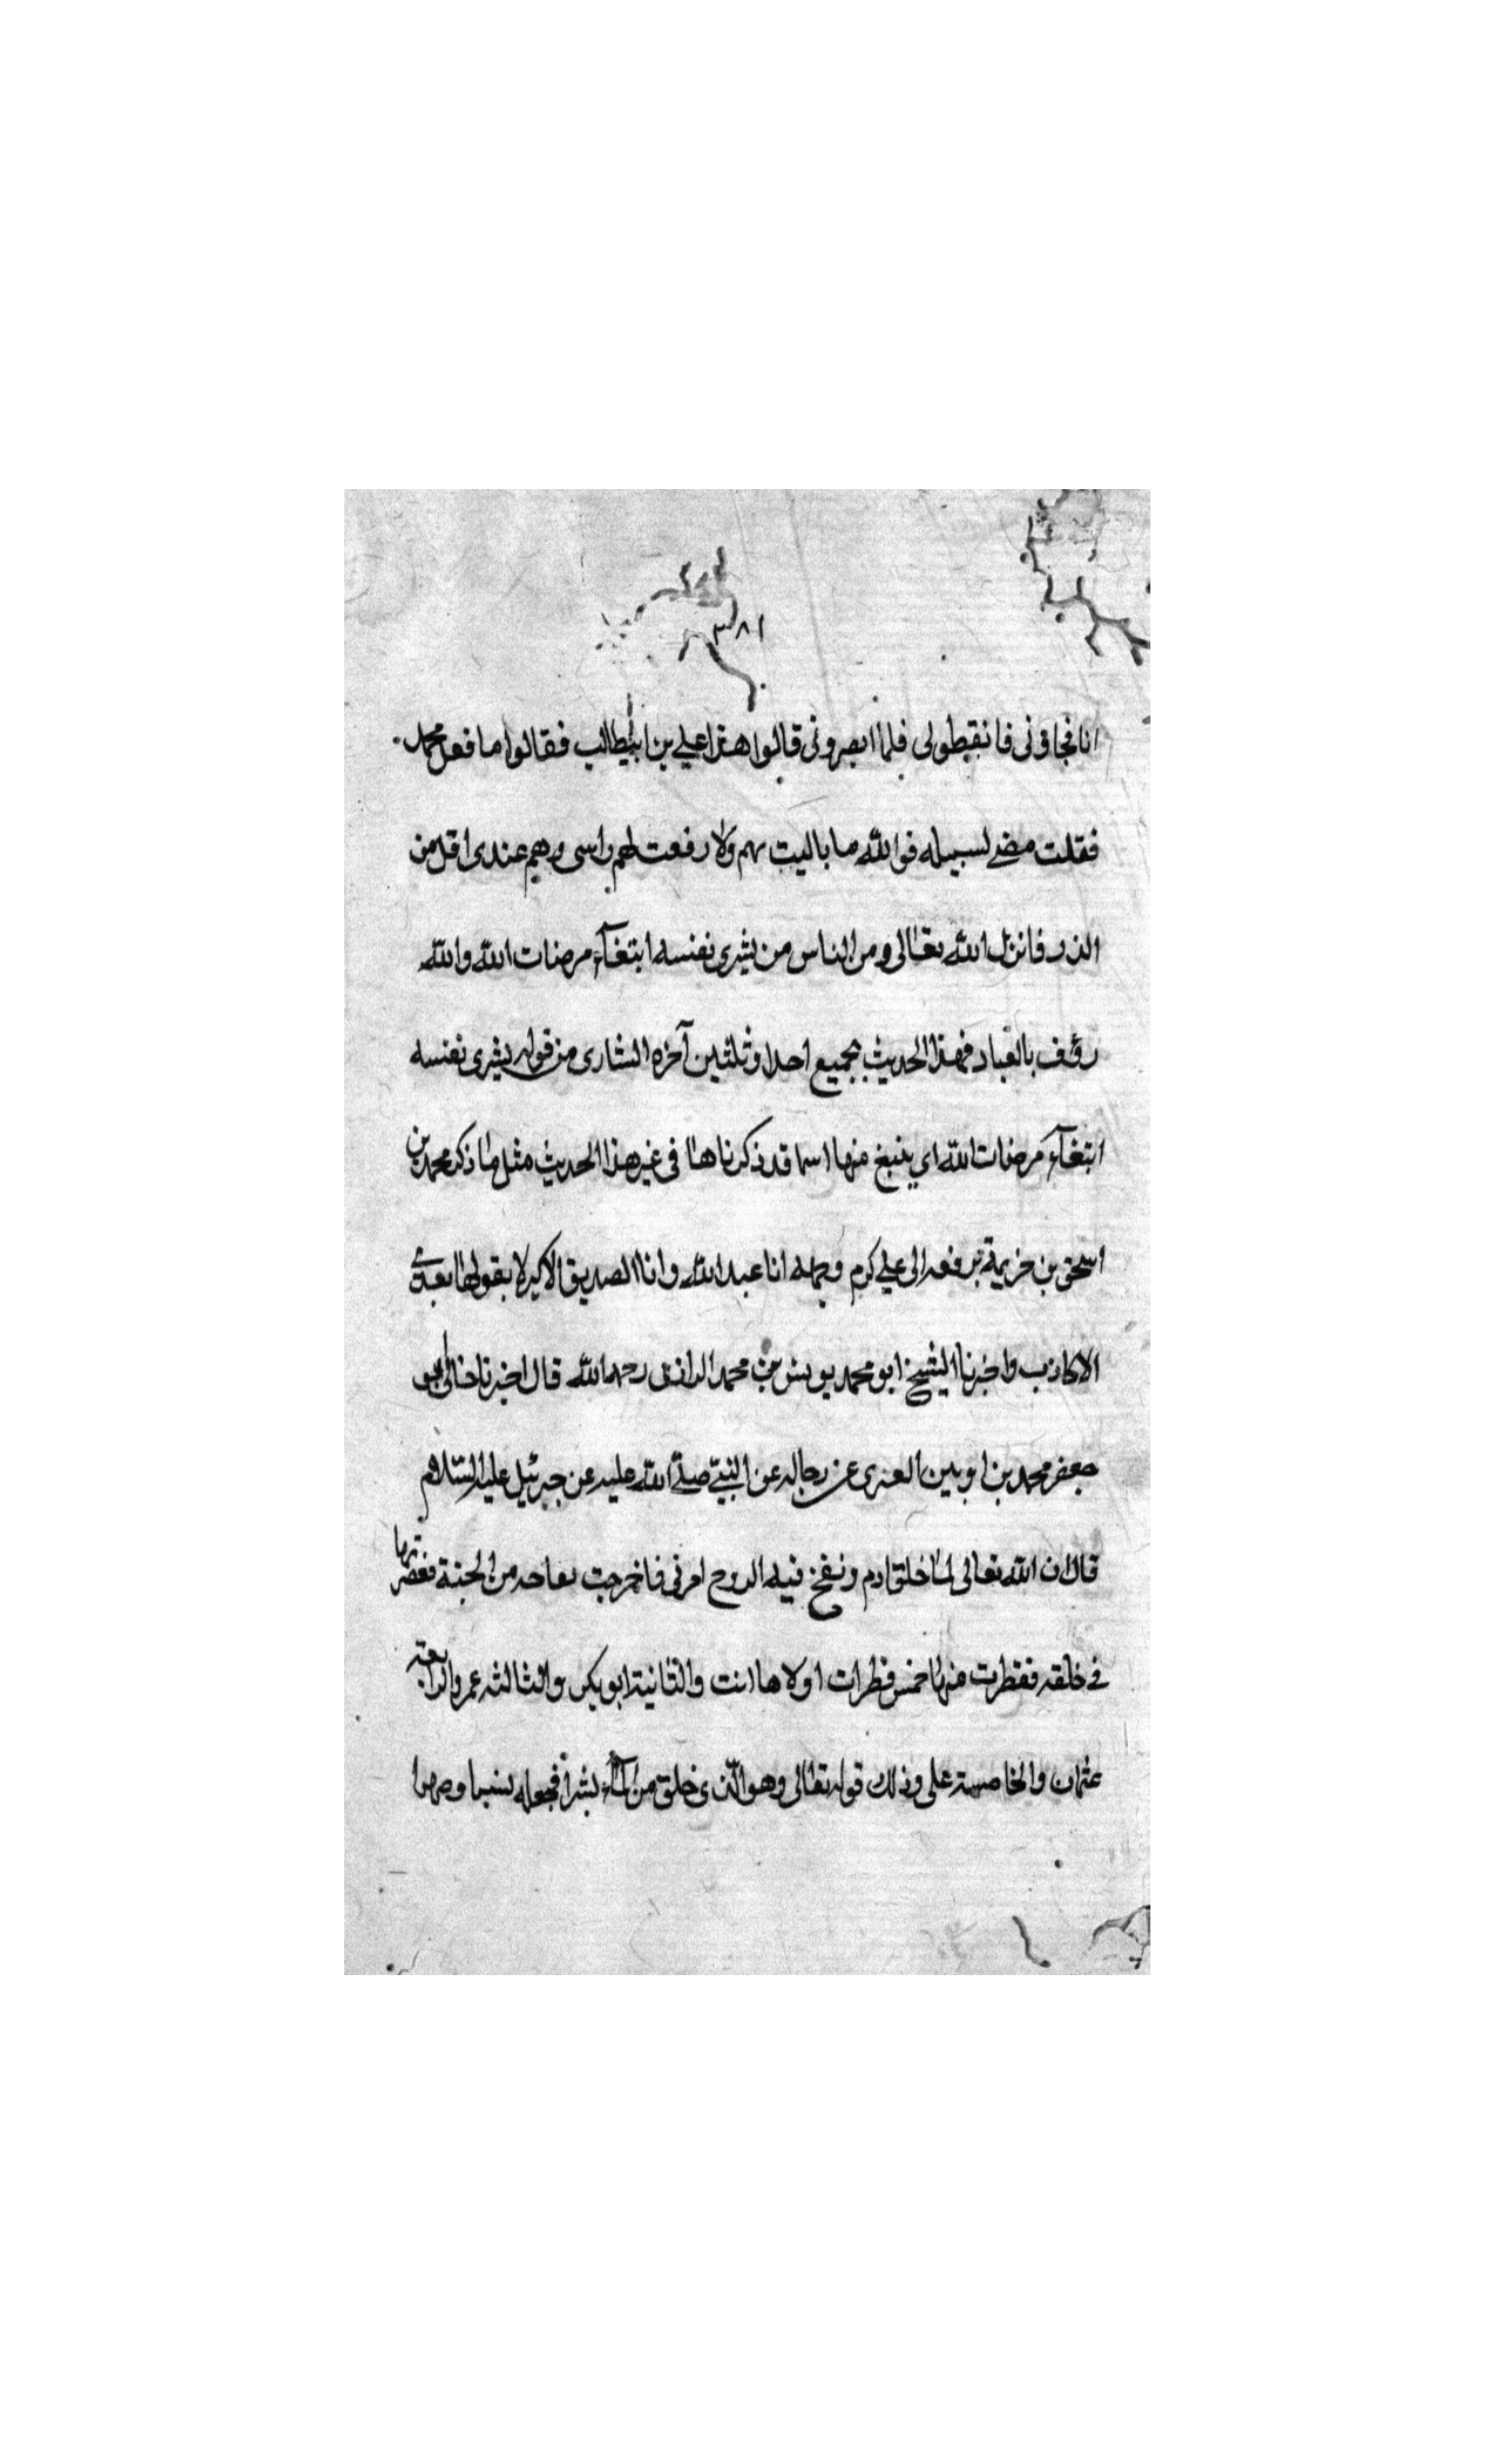 ٣٨١
انا فجاؤنى فانقبطولى فلما ابصرونى قالوا هذا علي بن ابيطالب فقالوا ما فعل محمد
فقلت مضے لسبيله فوالله ما باليت بهم ولا رفعت لهم راسى وهم عندى اقل من
الذر فانزل الله تعالى ومن الناس من يشرى نفسه ابتغآء مرضات الله والله
رؤف بالعباد فهذا الحديث بجميع احدا وثلثين آخره الشارى من قوله يشرى نفسه
ابتغآء مرضات الله اى ينبغ منها اسما قد ذكرناها فى غير هذا الحديث مثل ما ذكر محمد بن
اسحق بن خزيمة يرفعه الى علي كرم وجهه انا عبد الله وانا الصديق الاكبر لا يقولها بعدى
الا كاذب واخبرنا الشيخ ابو محمد يونس بن محمد الرازى رحمه الله قال اخبرنا خالى ابو
جعفر محمد بن العنزى عن رجاله عن النبيّ صلّے الله عليه عن جبرئيل عليه السّلام
قال ان الله تعالى لما خلق ادم ونفخ فيه الروح امرنى فاخرجت تفاحه من الجنة فعصرتها
فى خلقه فقطرت منها خمس قطرات اولاها انت والثانية ابو بكر والثالثه عمر والرابعة
عثمان والخامسة على وذلك قوله تعالى وهو الّذى خلق من المآء بشراً فجعله نسبا وصهرا